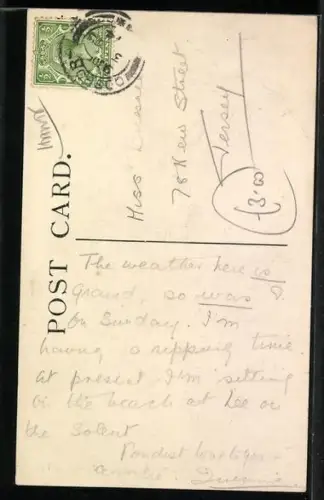 POST CARD.
Miss
78 New Street
Jersey
£3.00
The weather here is
grand, so was
on Sunday. I'm
having a ripping time
at present I'm sitting
on the beach at Lee on
the Solent
Fondest love to you